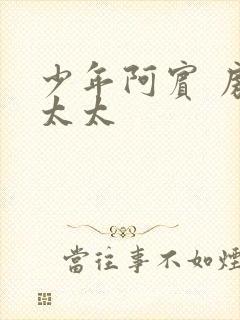 少年阿賓
太太
當往事不如煙